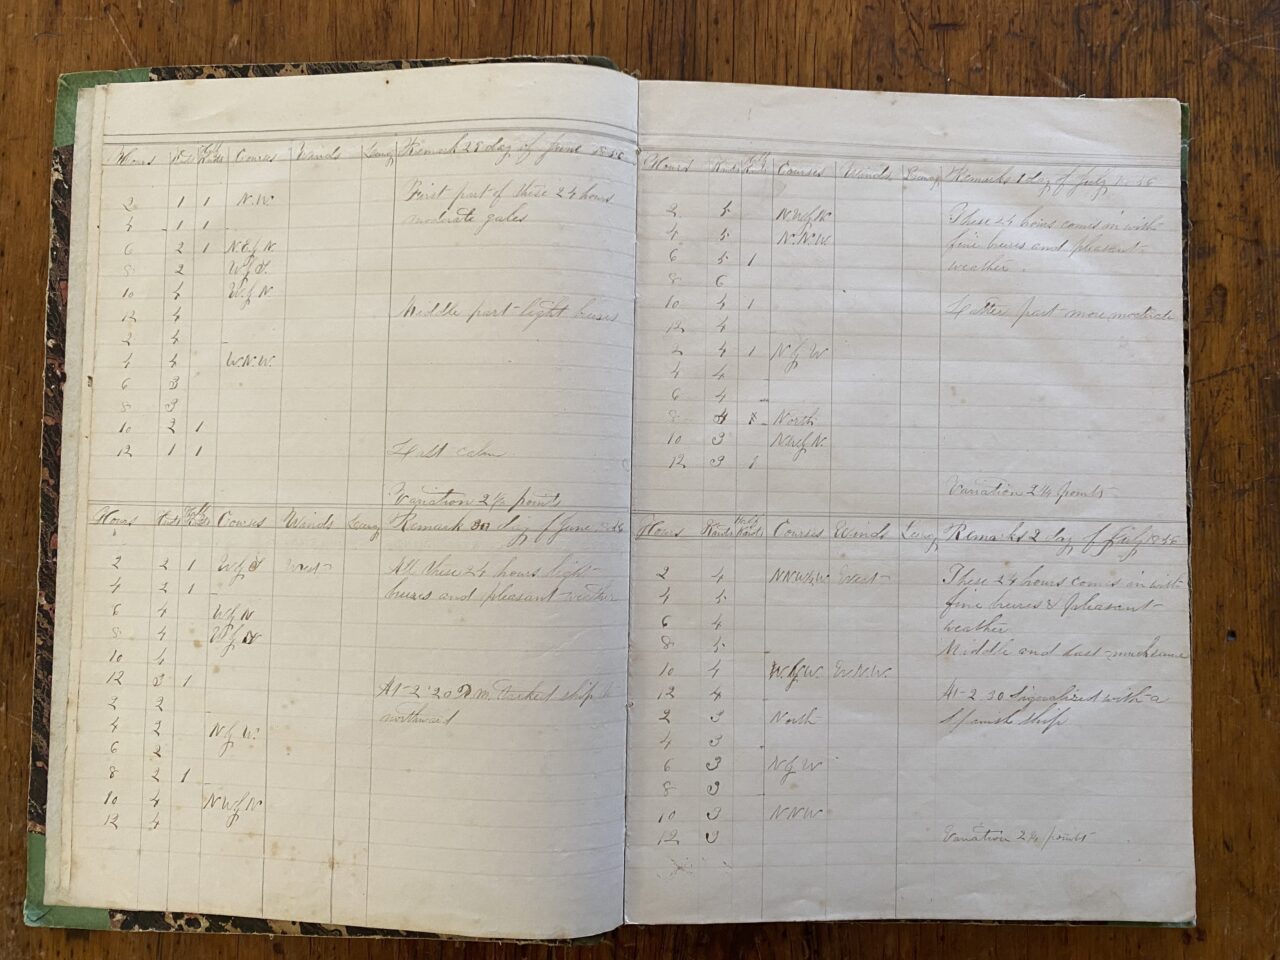 Hours Knots Half Knots Courses Winds Leway Remark day of June 1856
2 1 1 N.W. First part of these 24 hours
4 1 1 moderate gales
6 2 1
8 2
10 4 W.by N
12 4 Middle part light breises
2 4
4 4 W.N.W.
6 3
8 3
10 2 1
12 1 1 calm
Variation 2 1/4 points
Hours Knots Half Knots Courses Winds Leway Remark 30 day of June 1856
2 2 1 West All these 24 hours light
4 2 1 breises and pleasant weather
6 4 W by N
8 4
10 4
12 3 1 At 2.20 P.m. tacked ship to
2 2 northward
4 2 N by W.
6 2
8 2 1
10 4 N W by N
12 4
Hours Knots Half Knots Courses Winds Leway Remarks 1 day of July 1856
2 5 N.W by N. These 24 hours comes in with
4 5 N.N.W fine breises and pleasant
6 5 1 weather.
8 6
10 4 1 Latter part more moderate
12 4
2 4 1 N by W
4 4
6 4
8 4 North
10 3 N W by N.
12 3 1
Variation 2 1/4 points
Hours Knots Half Knots Courses Winds Leway Remarks 2 day of July 1856
2 4 West These 24 hours comes in with
4 5 fine breises & pleasent
6 4 weather
8 5 Middle and Last much same
10 4
12 4 At 2.30 signalized with a
2 3 North Spanish ship
4 3
6 3 N by W
8 3
10 3 N N W
12 3 Variation 2 1/4 points